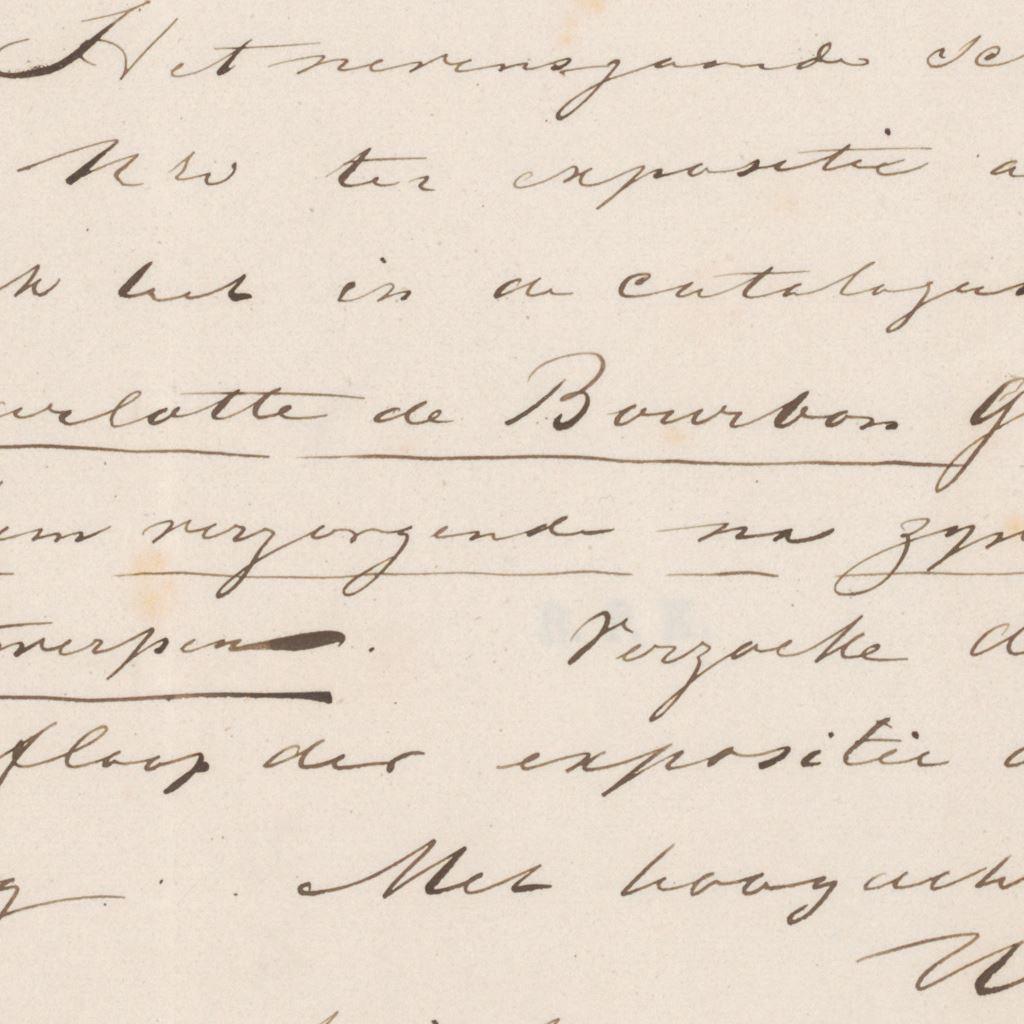 Het nevensgaande sc
Uw ter expositie a
k het in de catalogus
arlotte de Bourbon G
em verzorgende na zyn
twerpen. Verzoeke d
floop der expositie
g. Met hoogacht